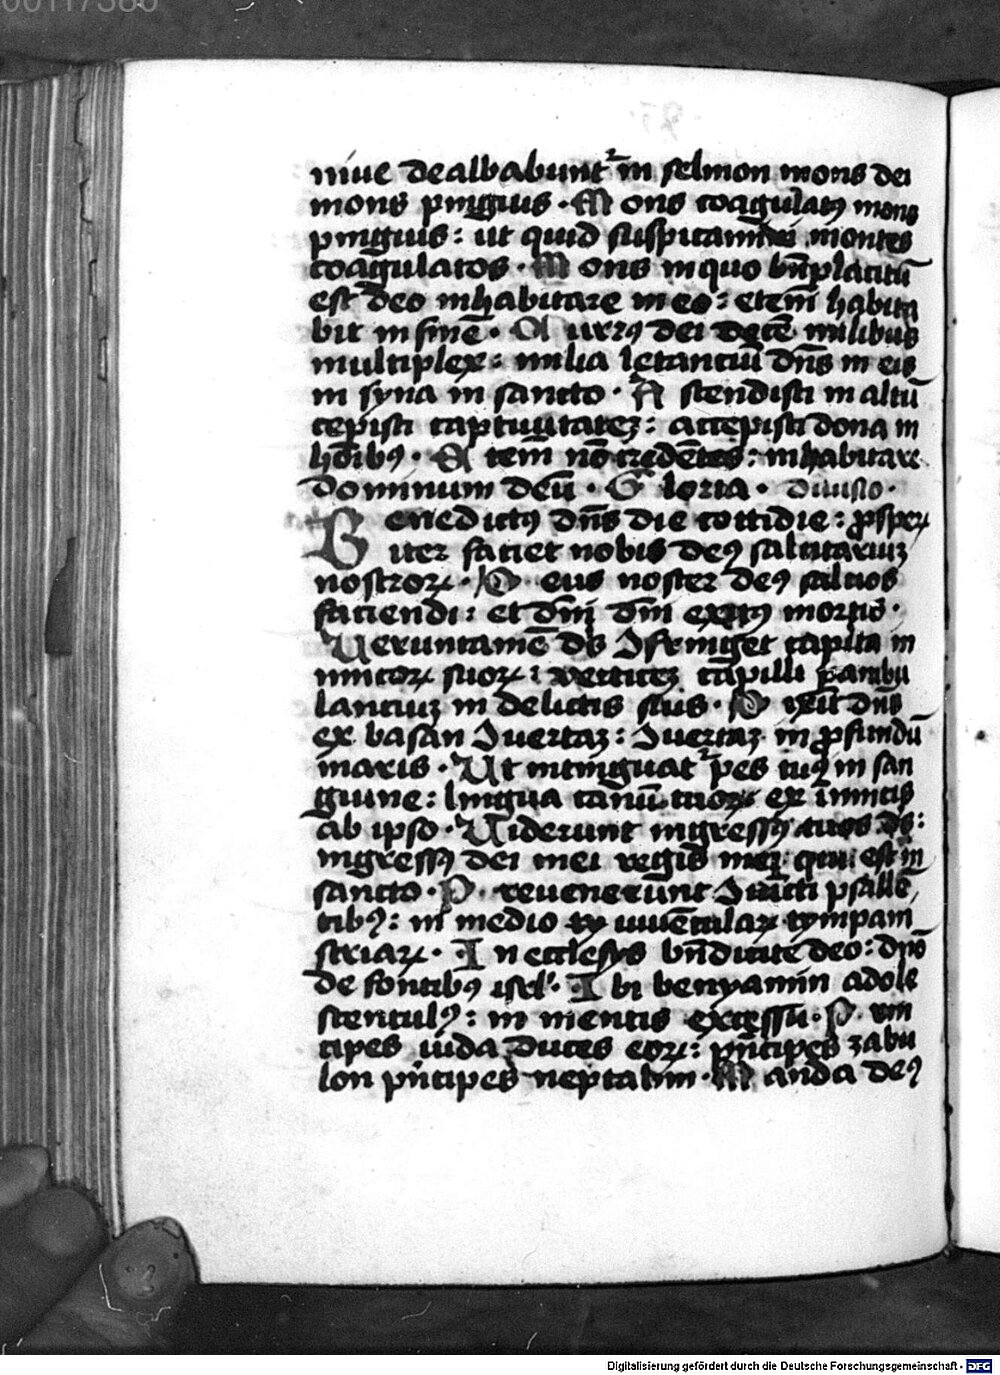 00117380
niue dealbabuntᷣ in selmon mons dei
mons pinguis · Mons coagulatꝰ mons
pinguis : ut quid suspicamini montes
coagulatos · Mons in quo bn̄placitū
est deo inhabitare in eo : etem̄ habita
bit in finē · Currꝰ dei decē milibus
multiplex : milia letantiū dn̄s in eis
in syna in sancto · Ascendisti in altū
cepisti captiuitateꝫ : accepisti dona in
hōibꝰ · Etem̄ nō credētes : inhabitare
dominum deū · Gloria · diuisio ·
Benedictꝰ dn̄s die cottidie : ꝓsperꝫ
iter faciet nobis deꝰ salutariuꝫ
nostroꝝ · Deus noster deꝰ saluos
faciendi : et dn̄i dn̄i exitꝰ mortis ·
Veruntamē ds̄ ɔfringet capita in
imicoꝝ suoꝝ : verticeꝫ capilli ꝑambu
lanciuꝫ in delictis suis · Dixit dn̄s
ex basan ɔuertaꝫ : ɔuertaꝫ in ꝓfundū
maris · Ut intinguatᷣ pes tuꝰ in san
guine : lingua canū tuoꝝ ex inimicis
ab ipso · Viderunt ingressꝰ tuos ds̄ :
ingressꝰ dei mei regis mei qui est in
sancto · Preuenerunt ɔiūcti psallē
tibꝰ : in medio iuuēculaꝝ tympani
striaꝝ · In ecclesijs bn̄dicite deo : dn̄o
de fontibꝰ isrl̄ · Ibi benyamin adole
scentulꝰ : in mentis excessu · Prin
cipes iuda duces eoꝝ : pn̄cipes zabu
lon pn̄cipes neptalim · Manda deꝰ
Digitalisierung gefördert durch die Deutsche Forschungsgemeinschaft - DFG